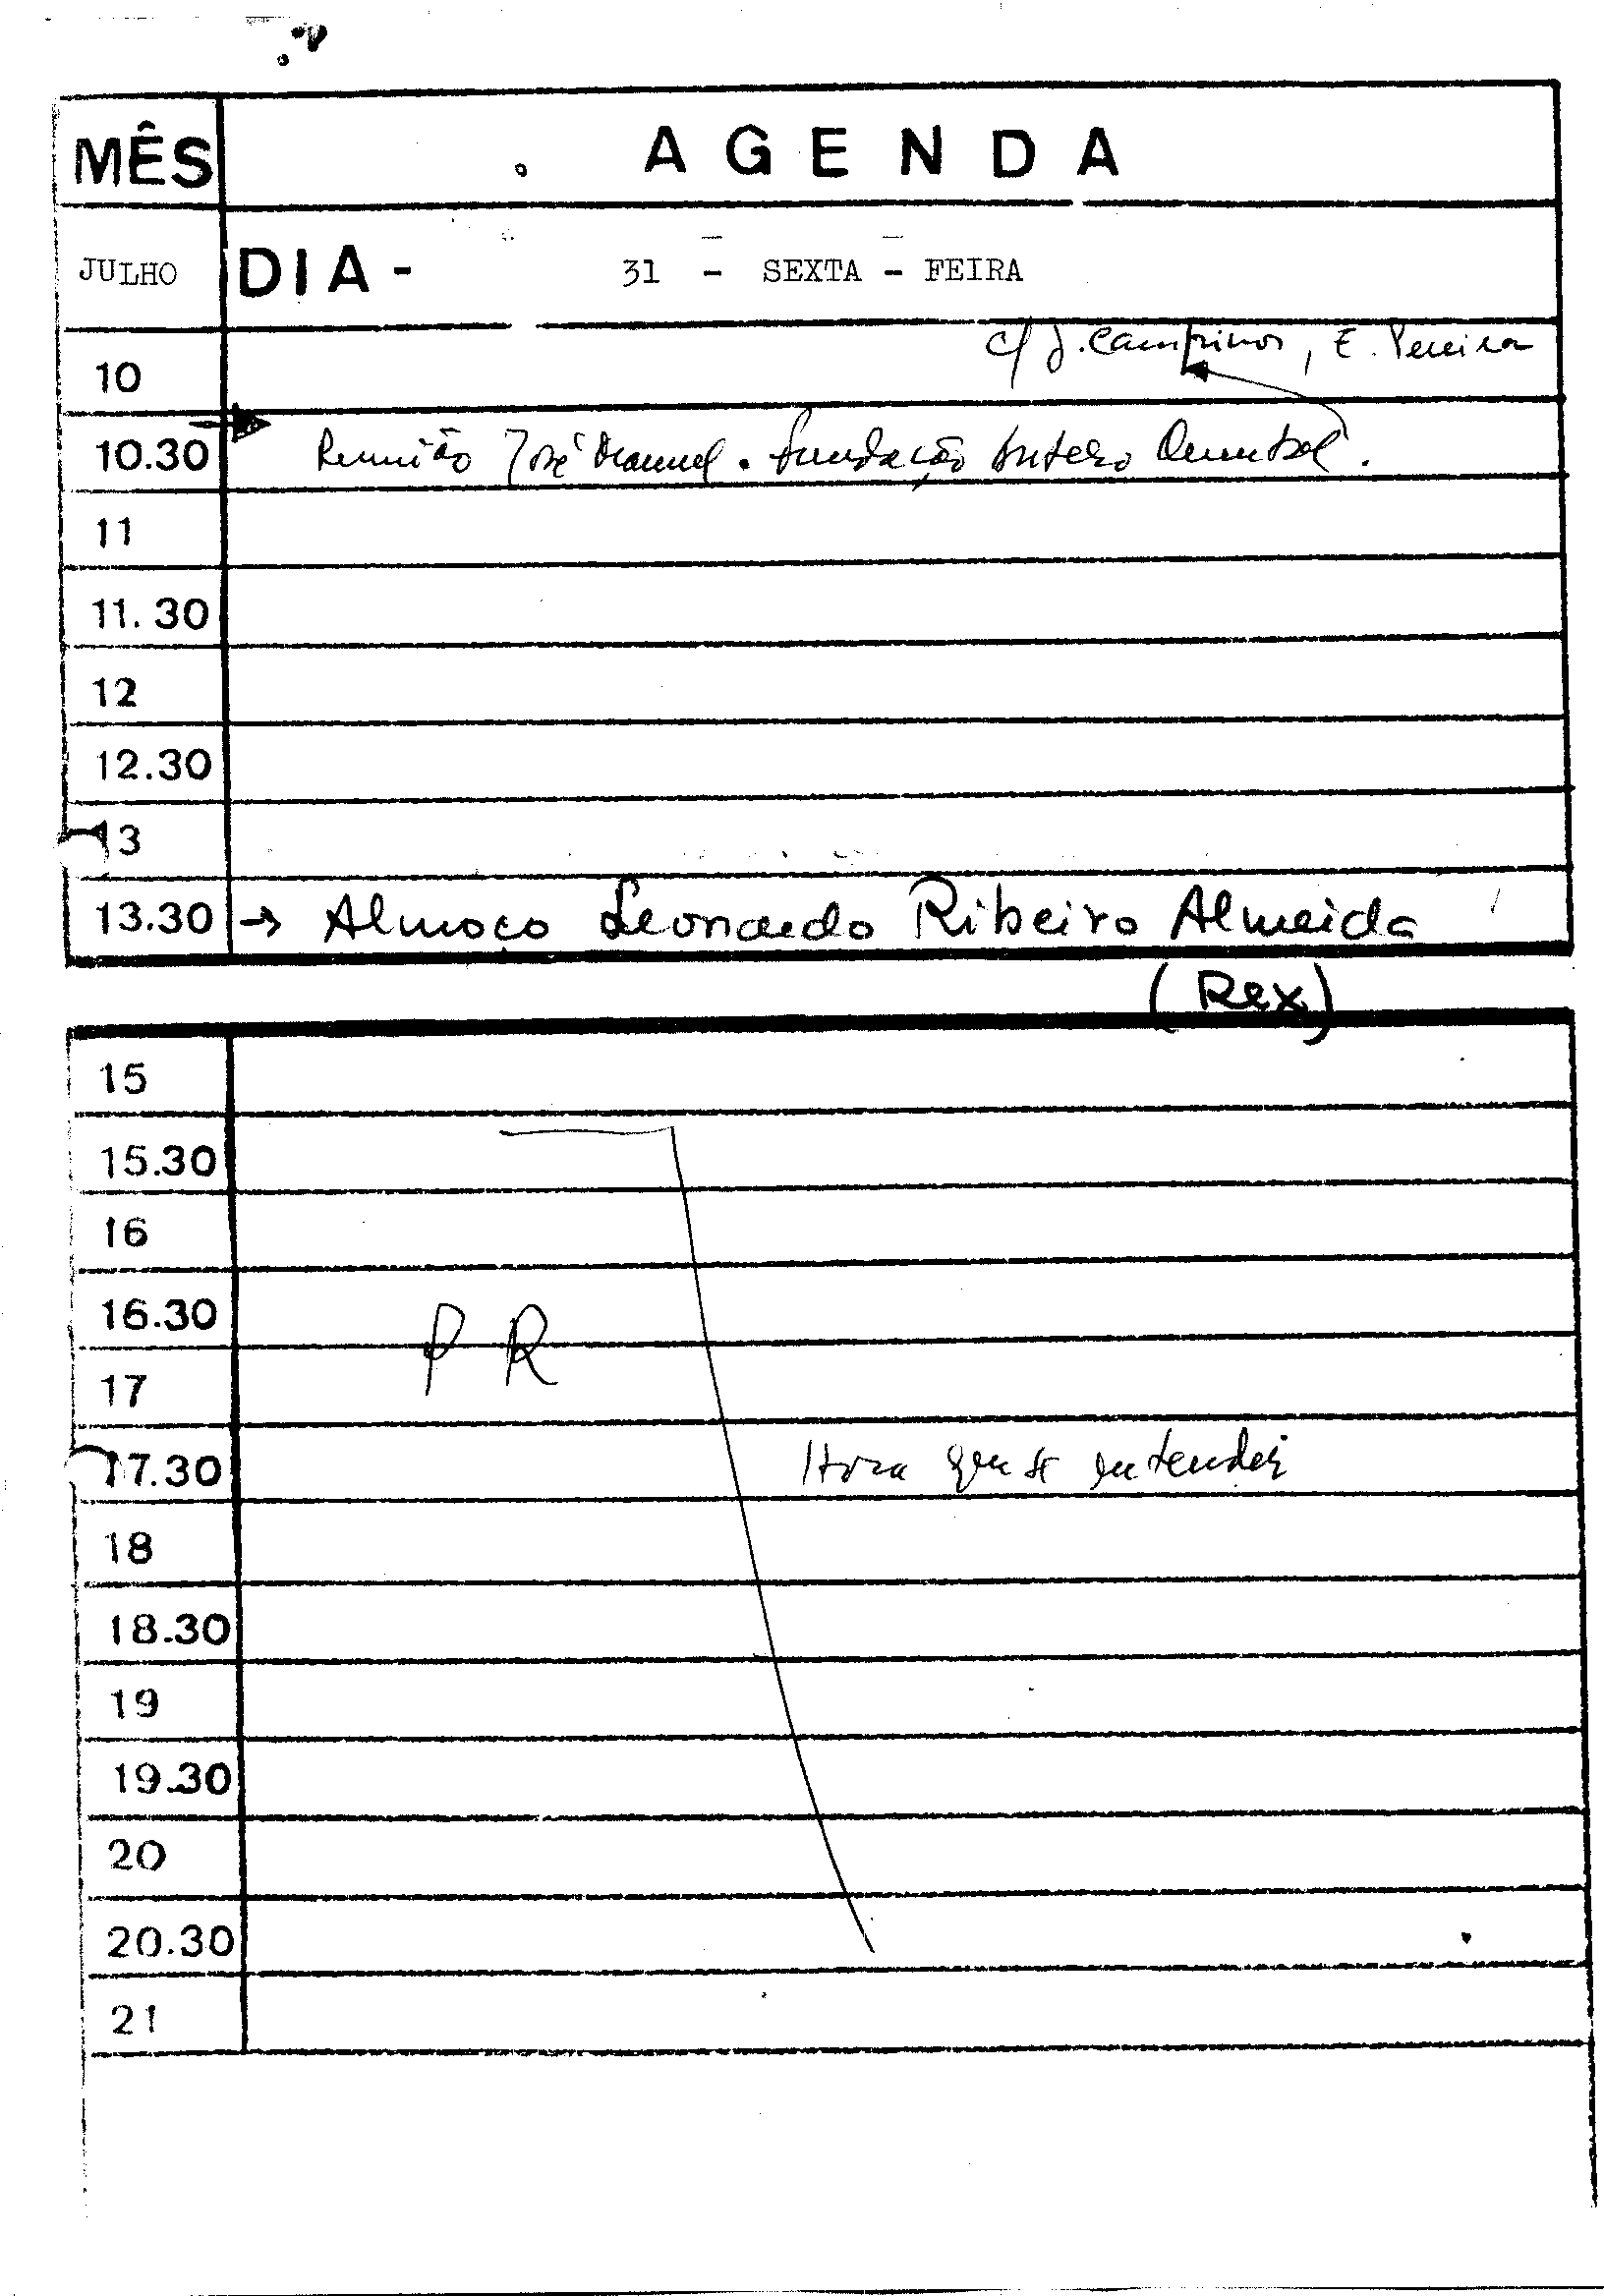 MÊS AGENDA
JULHO DIA - 31 - SEXTA - FEIRA
c/ J. Campinos, E. Pereira
10
10.30 Reunião José Manuel. Fundação Antero Quental.
11
11.30
12
12.30
13
13.30 → Almoço Leonardo Ribeiro Almeida
(Rex)
15
15.30
16
16.30
PR
17
17.30 Hora que se entender
18
18.30
19
19.30
20
20.30
21